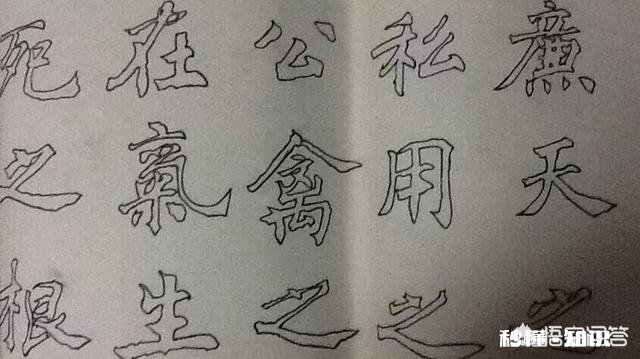 廉天之
私用之
公禽之
在氣生
死之根
悟空问答